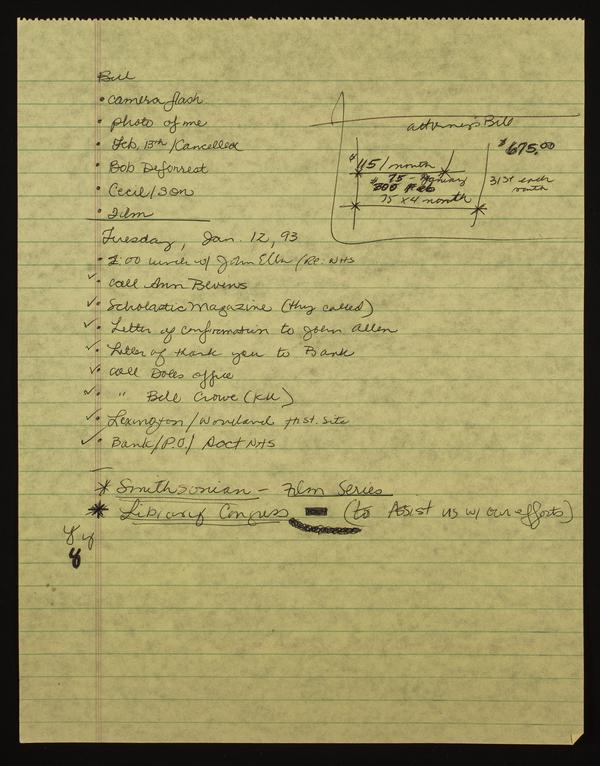 Bill
• camera flash
• photo of me
• Feb, 13th / Cancelled
• Bob DeForrest
• Cecil / son
• Film
attorneys Bill
$675.00
$115/month
$75 -
200
75 x 4 month
31st each month
Tuesday, Jan. 12, 93
• 2:00 lunch w/ John Ellis / Re: NHS
✓• call Ann Bevens
✓• Scholastic Magazine (they called)
✓• Letter of confirmation to John Allen
✓• Letter of thank you to Bank
✓• call Doles office
✓• " Bill Crowe (KU)
✓• Lexington / Hist. Site
✓• Bank / P.O / Acct NHS
* Smithsonian - Film Series
* Library of Congress - (to Assist us w/ our efforts)